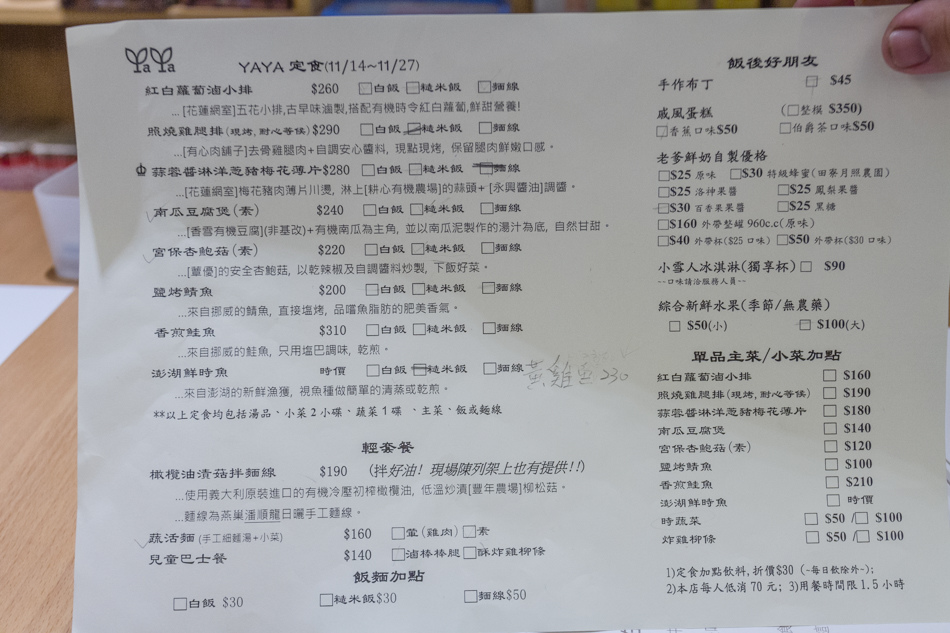 YaYa
YAYA 定食(11/14~11/27)
紅白蘿蔔滷小排 $260 □白飯 □糙米飯 □麵線
...[花蓮網室]五花小排,古早味滷製,搭配有機時令紅白蘿蔔,鮮甜營養!
照燒雞腿排(現烤,耐心等候)$290 □白飯 □糙米飯 □麵線
...[有心肉舖子]去骨雞腿肉+自調安心醬料, 現點現烤, 保留腿肉鮮嫩口感。
蒜蓉醬淋洋蔥豬梅花薄片$280 □白飯 □糙米飯 □麵線
...[花蓮網室]梅花豬肉薄片川燙, 淋上[耕心有機農場]的蒜頭+ [永興醬油]調醬。
南瓜豆腐煲(素) $240 □白飯 □糙米飯 □麵線
...[香雪有機豆腐](非基改)+有機南瓜為主角, 並以南瓜泥製作的湯汁為底, 自然甘甜。
宮保杏鮑菇(素) $220 □白飯 □糙米飯 □麵線
...[蕈優]的安全杏鮑菇, 以乾辣椒及自調醬料炒製, 下飯好菜。
鹽烤鯖魚 $200 □白飯 □糙米飯 □麵線
...來自挪威的鯖魚, 直接塩烤, 品嚐魚脂肪的肥美香氣。
香煎鮭魚 $310 □白飯 □糙米飯 □麵線
...來自挪威的鮭魚, 只用塩巴調味, 乾煎。
澎湖鮮時魚 時價 □白飯 □糙米飯 □麵線
黃雞 230
...來自澎湖的新鮮漁獲, 視魚種做簡單的清蒸或乾煎。
**以上定食均包括湯品、小菜 2 小碟、蔬菜 1 碟 、主菜、飯或麵線
輕套餐
橄欖油漬菇拌麵線 $190 (拌好油! 現場陳列架上也有提供!!)
...使用義大利原裝進口的有機冷壓初榨橄欖油, 低溫炒漬[豐年農場]柳松菇。
...麵線為燕巢潘順龍日曬手工麵線。
蔬活麵(手工細麵湯+小菜) $160 □葷(雞肉) □素
兒童巴士餐 $140 □滷棒棒腿 □酥炸雞柳條
飯麵加點
□白飯 $30 □糙米飯$30 □麵線$50
飯後好朋友
手作布丁 □ $45
戚風蛋糕 (□整模 $350)
□香蕉口味$50 □伯爵茶口味$50
老爹鮮奶自製優格
□$25 原味 □$30 特級蜂蜜(田寮月照農園)
□$25 洛神果醬 □$25 鳳梨果醬
□$30 百香果果醬 □$25 黑糖
□$160 外帶整罐 960c.c(原味)
□$40 外帶杯($25 口味) □$50 外帶杯($30 口味)
小雪人冰淇淋(獨享杯) □ $90
~~口味請洽服務人員~~
綜合新鮮水果(季節/無農藥)
□ $50(小) □ $100(大)
單品主菜/小菜加點
紅白蘿蔔滷小排 □ $160
照燒雞腿排(現烤,耐心等候) □ $190
蒜蓉醬淋洋蔥豬梅花薄片 □ $180
南瓜豆腐煲 □ $140
宮保杏鮑菇(素) □ $120
鹽烤鯖魚 □ $100
香煎鮭魚 □ $210
澎湖鮮時魚 □ 時價
時蔬菜 □ $50 /□ $100
炸雞柳條 □ $50 /□ $100
1)定食加點飲料,折價$30 (~每日飲除外~);
2)本店每人低消 70 元; 3)用餐時間限 1.5 小時